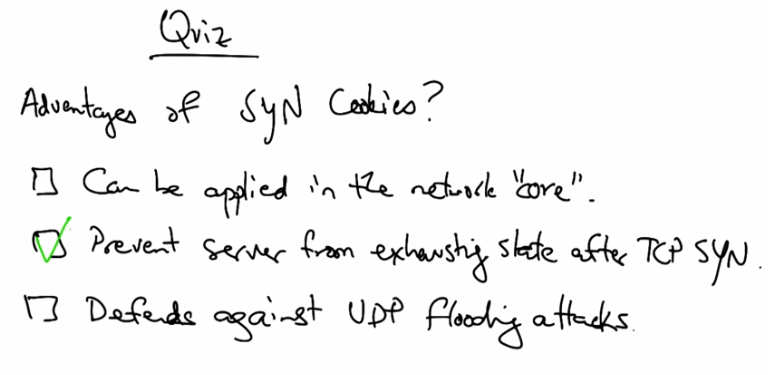 Quiz
Advantages of SYN Cookies?
Can be applied in the network "core".
Prevent server from exhausting state after TCP SYN.
Defends against UDP flooding attacks.